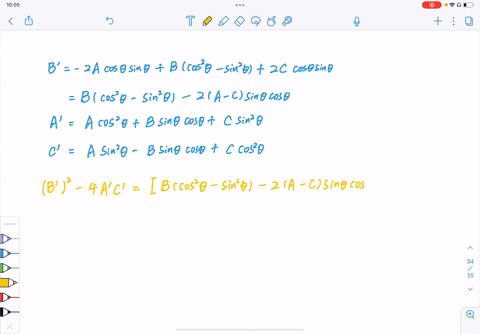 10:05
B' = -2A cosθ sinθ + B(cos²θ - sin²θ) + 2C cosθ sinθ
= B(cos²θ - sin²θ) - 2(A-C) sinθ cosθ
A' = A cos²θ + B sinθ cosθ + C sin²θ
C' = A sin²θ - B sinθ cosθ + C cos²θ
(B')² - 4A'C' = [B(cos²θ - sin²θ) - 2(A-C) sinθ cos
34
/
35